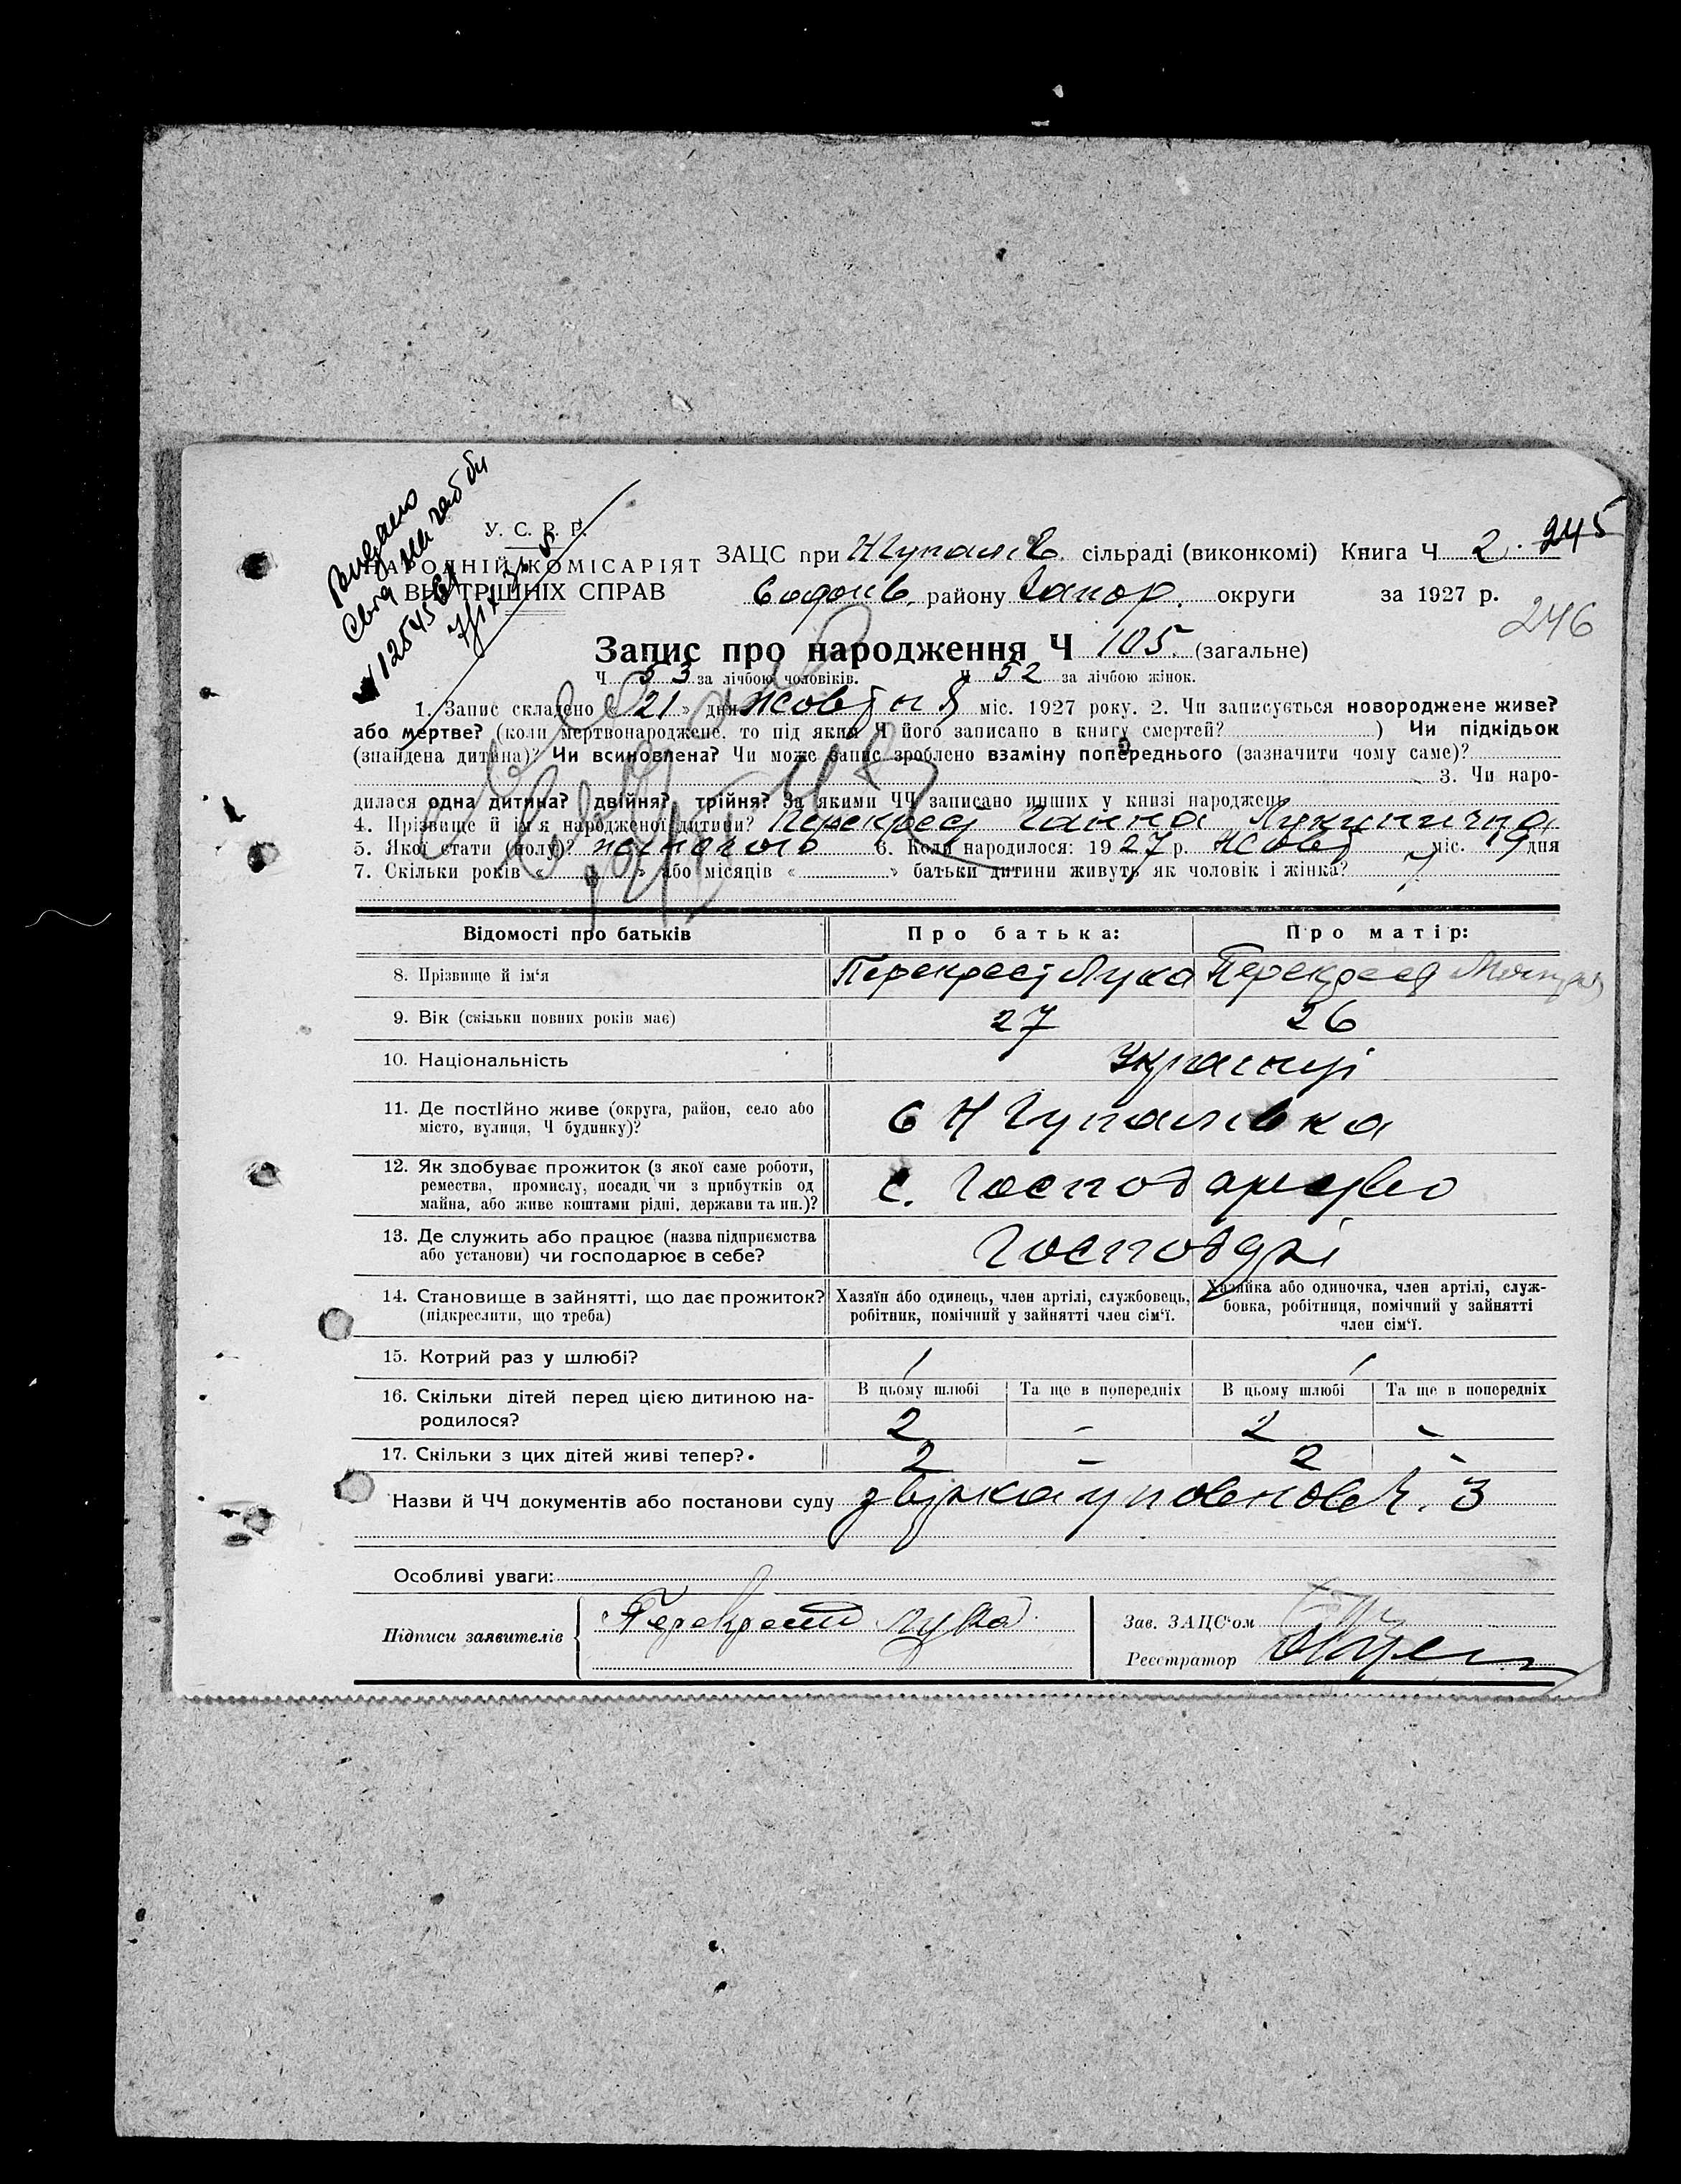 Видано
У. С. Р. Р.
НАРОДНІЙ КОМІСАРІЯТ
ВНУТРІШНІХ СПРАВ
ЗАЦС при сільраді (виконкомі) Книга Ч 2. 245
району Запор. округи за 1927 р.
246
Запис про народження Ч 105. (загальне)
Ч 53 за лічбою чоловіків. Ч 52 за лічбою жінок.
1. Запис складено « 21 » дня жовтня міс. 1927 року. 2. Чи записується новороджене живе?
або мертве? (коли мертвонароджене, то під яким Ч його записано в книгу смертей? ) Чи підкідьок
(знайдена дитина)? Чи всиновлена? Чи може запис зроблено взаміну попереднього (зазначити чому саме)?
3. Чи наро-
дилася одна дитина? двійня? трійня? За якими ЧЧ записано инших у книзі народжень
4. Прізвище й ім'я народженої дитини? Перекрест Ганна Лукинична
5. Якої стати (полу)? жіночого 6. Коли народилося: 1927 р. Жовт міс. 19 дня
7. Скільки років « » або місяців « » батьки дитини живуть як чоловік і жінка? 7
Відомості про батьків Про батька: Про матір:
8. Прізвище й ім'я Перекрест Лука Перекрест
9. Вік (скільки повних років має) 27 26
10. Національність Українці
11. Де постійно живе (округа, район, село або
місто, вулиця, Ч будинку)? с Н Гупалівка
12. Як здобуває прожиток (з якої саме роботи,
ремества, промислу, посади, чи з прибутків од
майна, або живе коштами рідні, держави та ин.)? с. Господарство
13. Де служить або працює (назва підприємства
або установи) чи господарює в себе? Господарі
14. Становище в зайнятті, що дає прожиток?
(підкреслити, що треба)
Хазяїн або одинець, член артілі, службовець,
робітник, помічний у зайнятті член сім'ї.
Хазяйка або одиночка, член артілі, служ-
бовка, робітниця, помічний у зайнятті
член сім'ї.
15. Котрий раз у шлюбі? 1 1
В цьому шлюбі Та ще в попередніх В цьому шлюбі Та ще в попередніх
16. Скільки дітей перед цією дитиною на-
родилося? 2 - 2 -
17. Скільки з цих дітей живі тепер? 2 - 2 -
Назви й ЧЧ документів або постанови суду Ч. 3
Особливі уваги:
Підписи заявителів Перекрест Лука
Зав. ЗАЦС'ом
Реєстратор